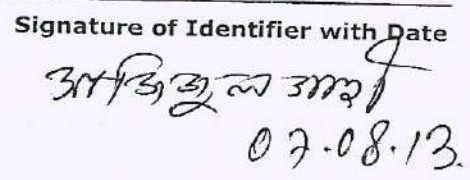 Signature of Identifier with Date
আজিজুল
07.08.13.